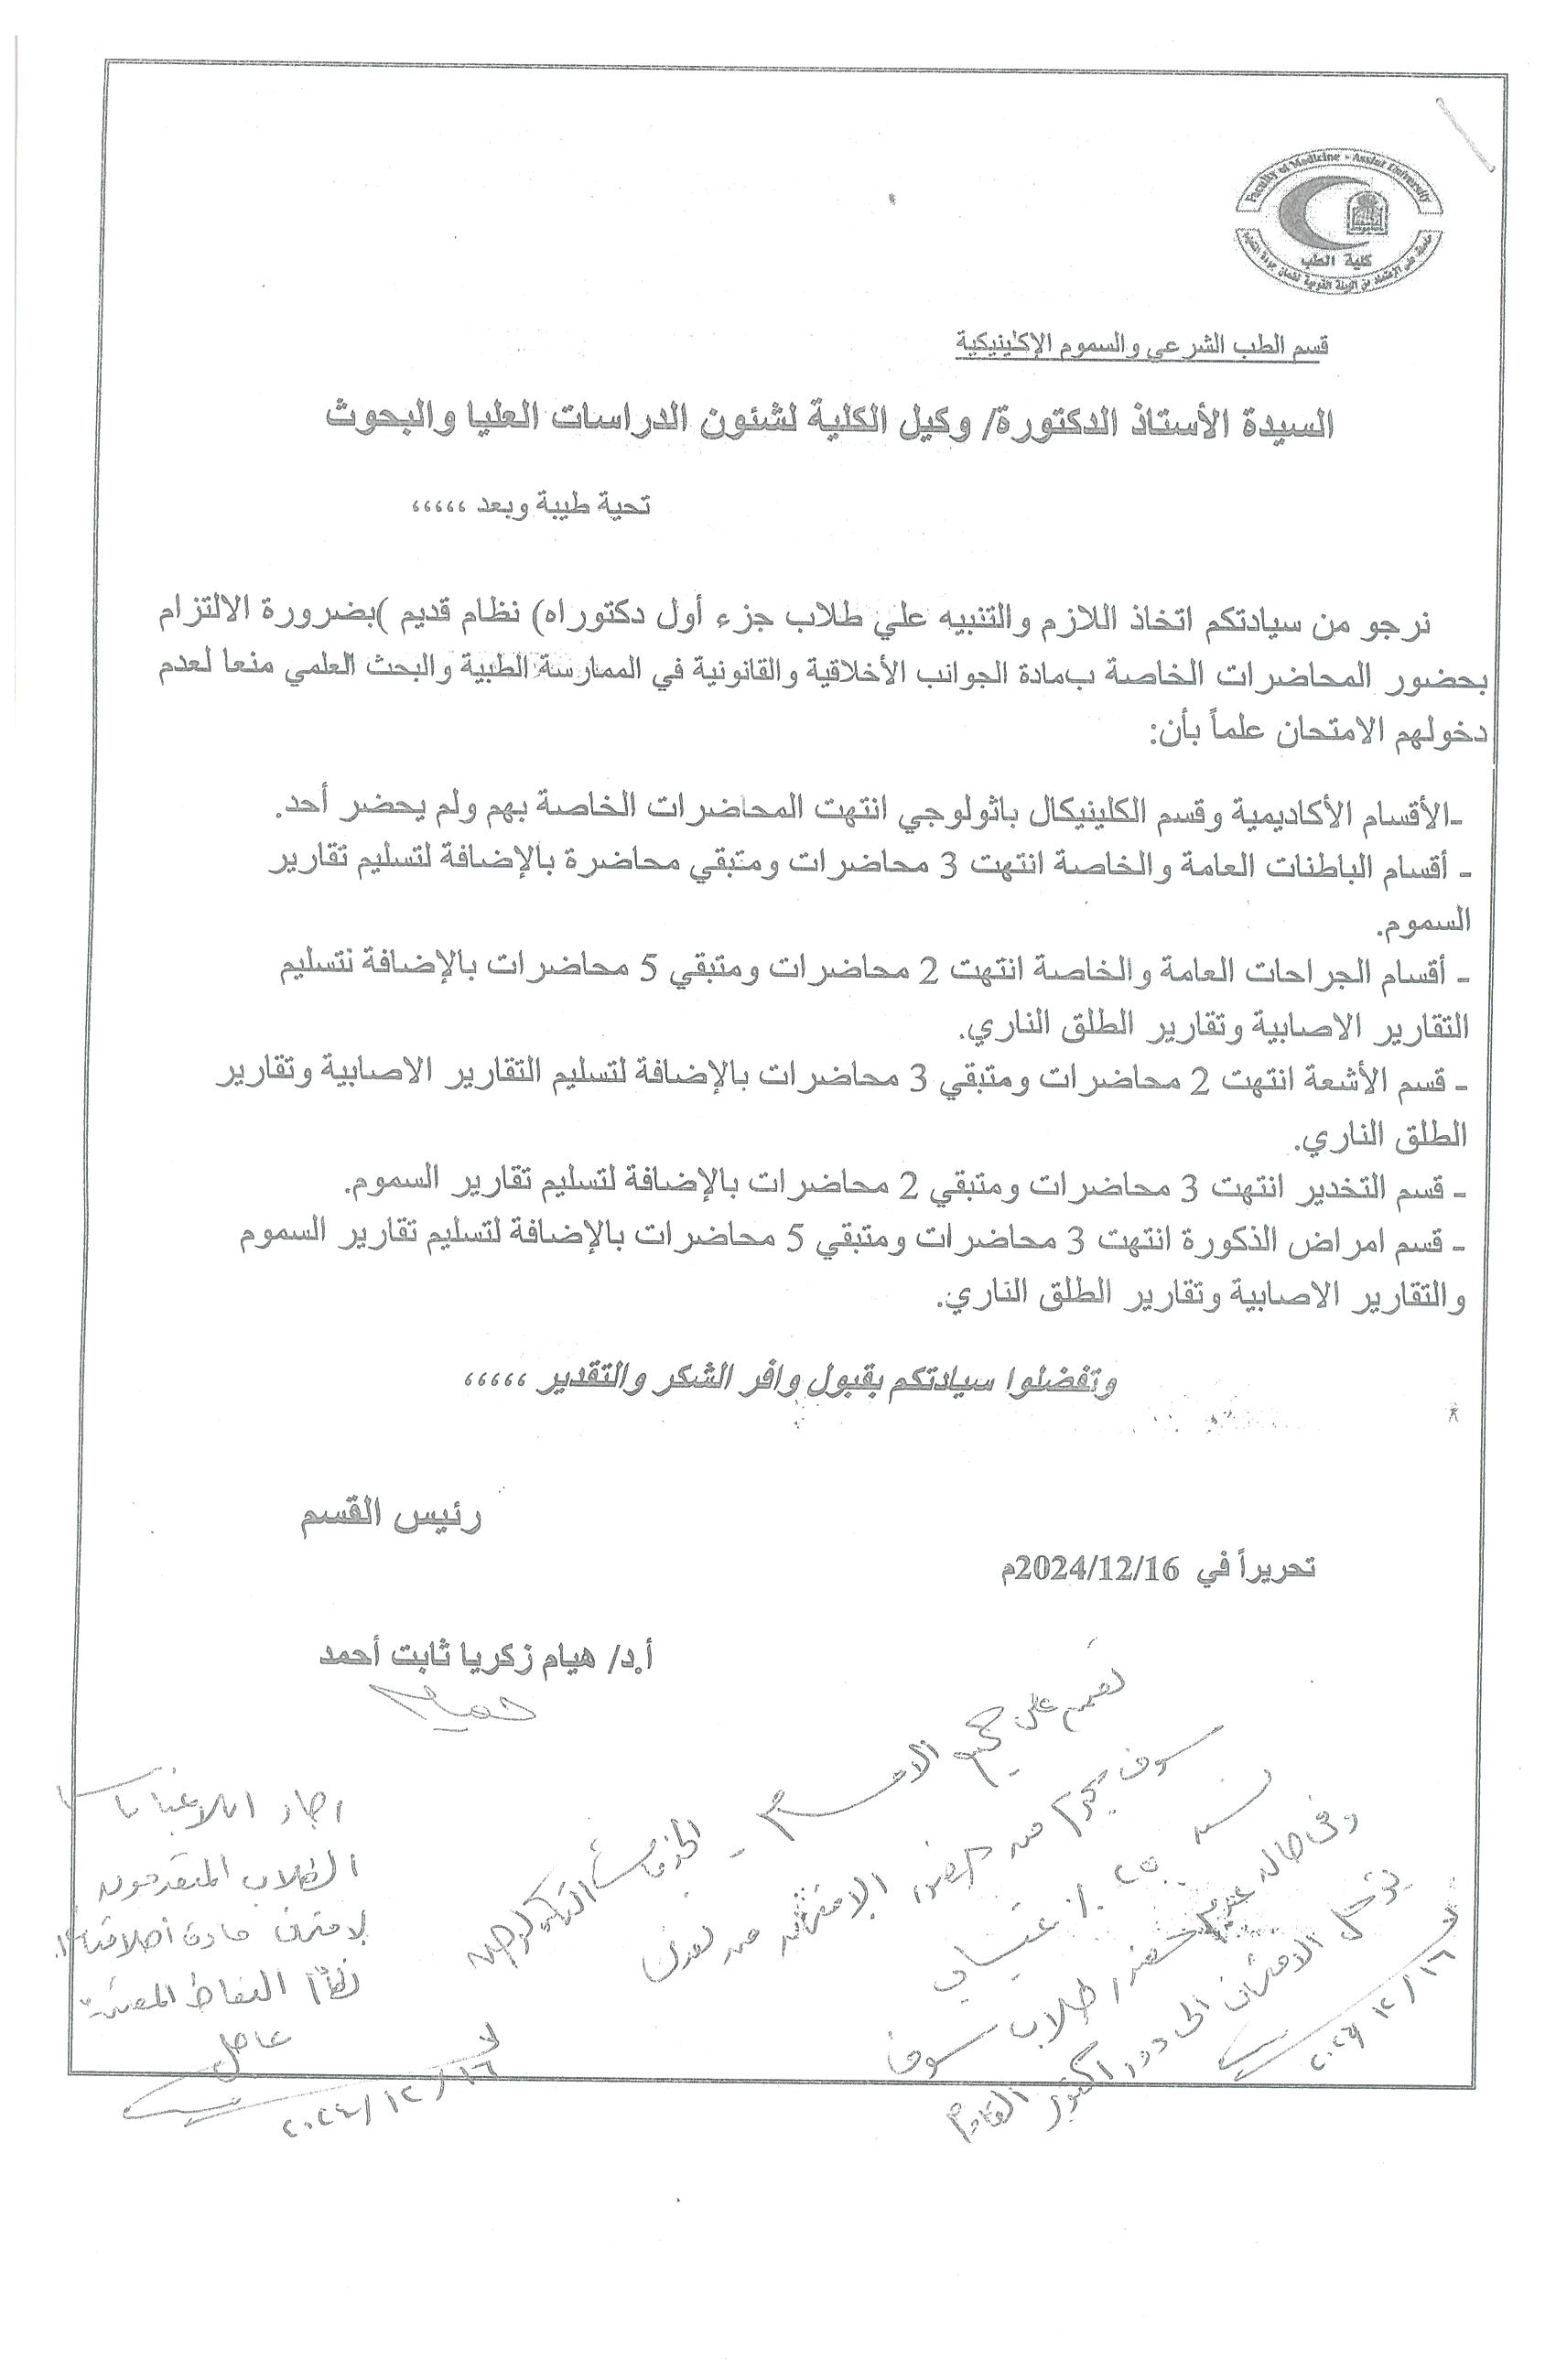 Faculty of Medicine - Assiut University
كلية الطب
حاصلة على الاعتماد من الهيئة القومية لضمان جودة التعليم
قسم الطب الشرعي والسموم الإكلينيكية
السيدة الأستاذ الدكتورة/ وكيل الكلية لشئون الدراسات العليا والبحوث
تحية طيبة وبعد ،،،،،
نرجو من سيادتكم اتخاذ اللازم والتنبيه علي طلاب جزء أول دكتوراه) نظام قديم )بضرورة الالتزام
بحضور المحاضرات الخاصة بمادة الجوانب الأخلاقية والقانونية في الممارسة الطبية والبحث العلمي منعا لعدم
دخولهم الامتحان علماً بأن:
-الأقسام الأكاديمية وقسم الكلينيكال باثولوجي انتهت المحاضرات الخاصة بهم ولم يحضر أحد.
- أقسام الباطنات العامة والخاصة انتهت 3 محاضرات ومتبقي محاضرة بالإضافة لتسليم تقارير
السموم.
- أقسام الجراحات العامة والخاصة انتهت 2 محاضرات ومتبقي 5 محاضرات بالإضافة لتسليم
التقارير الاصابية وتقارير الطلق الناري.
- قسم الأشعة انتهت 2 محاضرات ومتبقي 3 محاضرات بالإضافة لتسليم التقارير الاصابية وتقارير
الطلق الناري.
- قسم التخدير انتهت 3 محاضرات ومتبقي 2 محاضرات بالإضافة لتسليم تقارير السموم.
- قسم امراض الذكورة انتهت 3 محاضرات ومتبقي 5 محاضرات بالإضافة لتسليم تقارير السموم
والتقارير الاصابية وتقارير الطلق الناري.
وتفضلوا سيادتكم بقبول وافر الشكر والتقدير ،،،،،
رئيس القسم
تحريراً في 2024/12/16م
أ.د/ هيام زكريا ثابت أحمد
على جميع
سوف يحرم من
٢٥ ٪ غياب
وفى حاله عدم حضور طلاب سوف
الامتحان الى دور أكتوبر القادم
٢٠٢٤/١٢/١٦
الطلاب المتقدمون
لامتحان مادة أخلاقيات
نظام النقاط المعتمدة
عاجل
٢٠٢٤/١٢/١٦